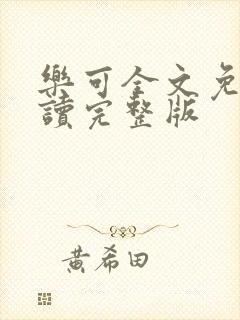 樂可全文免
讀完整版
黃希田